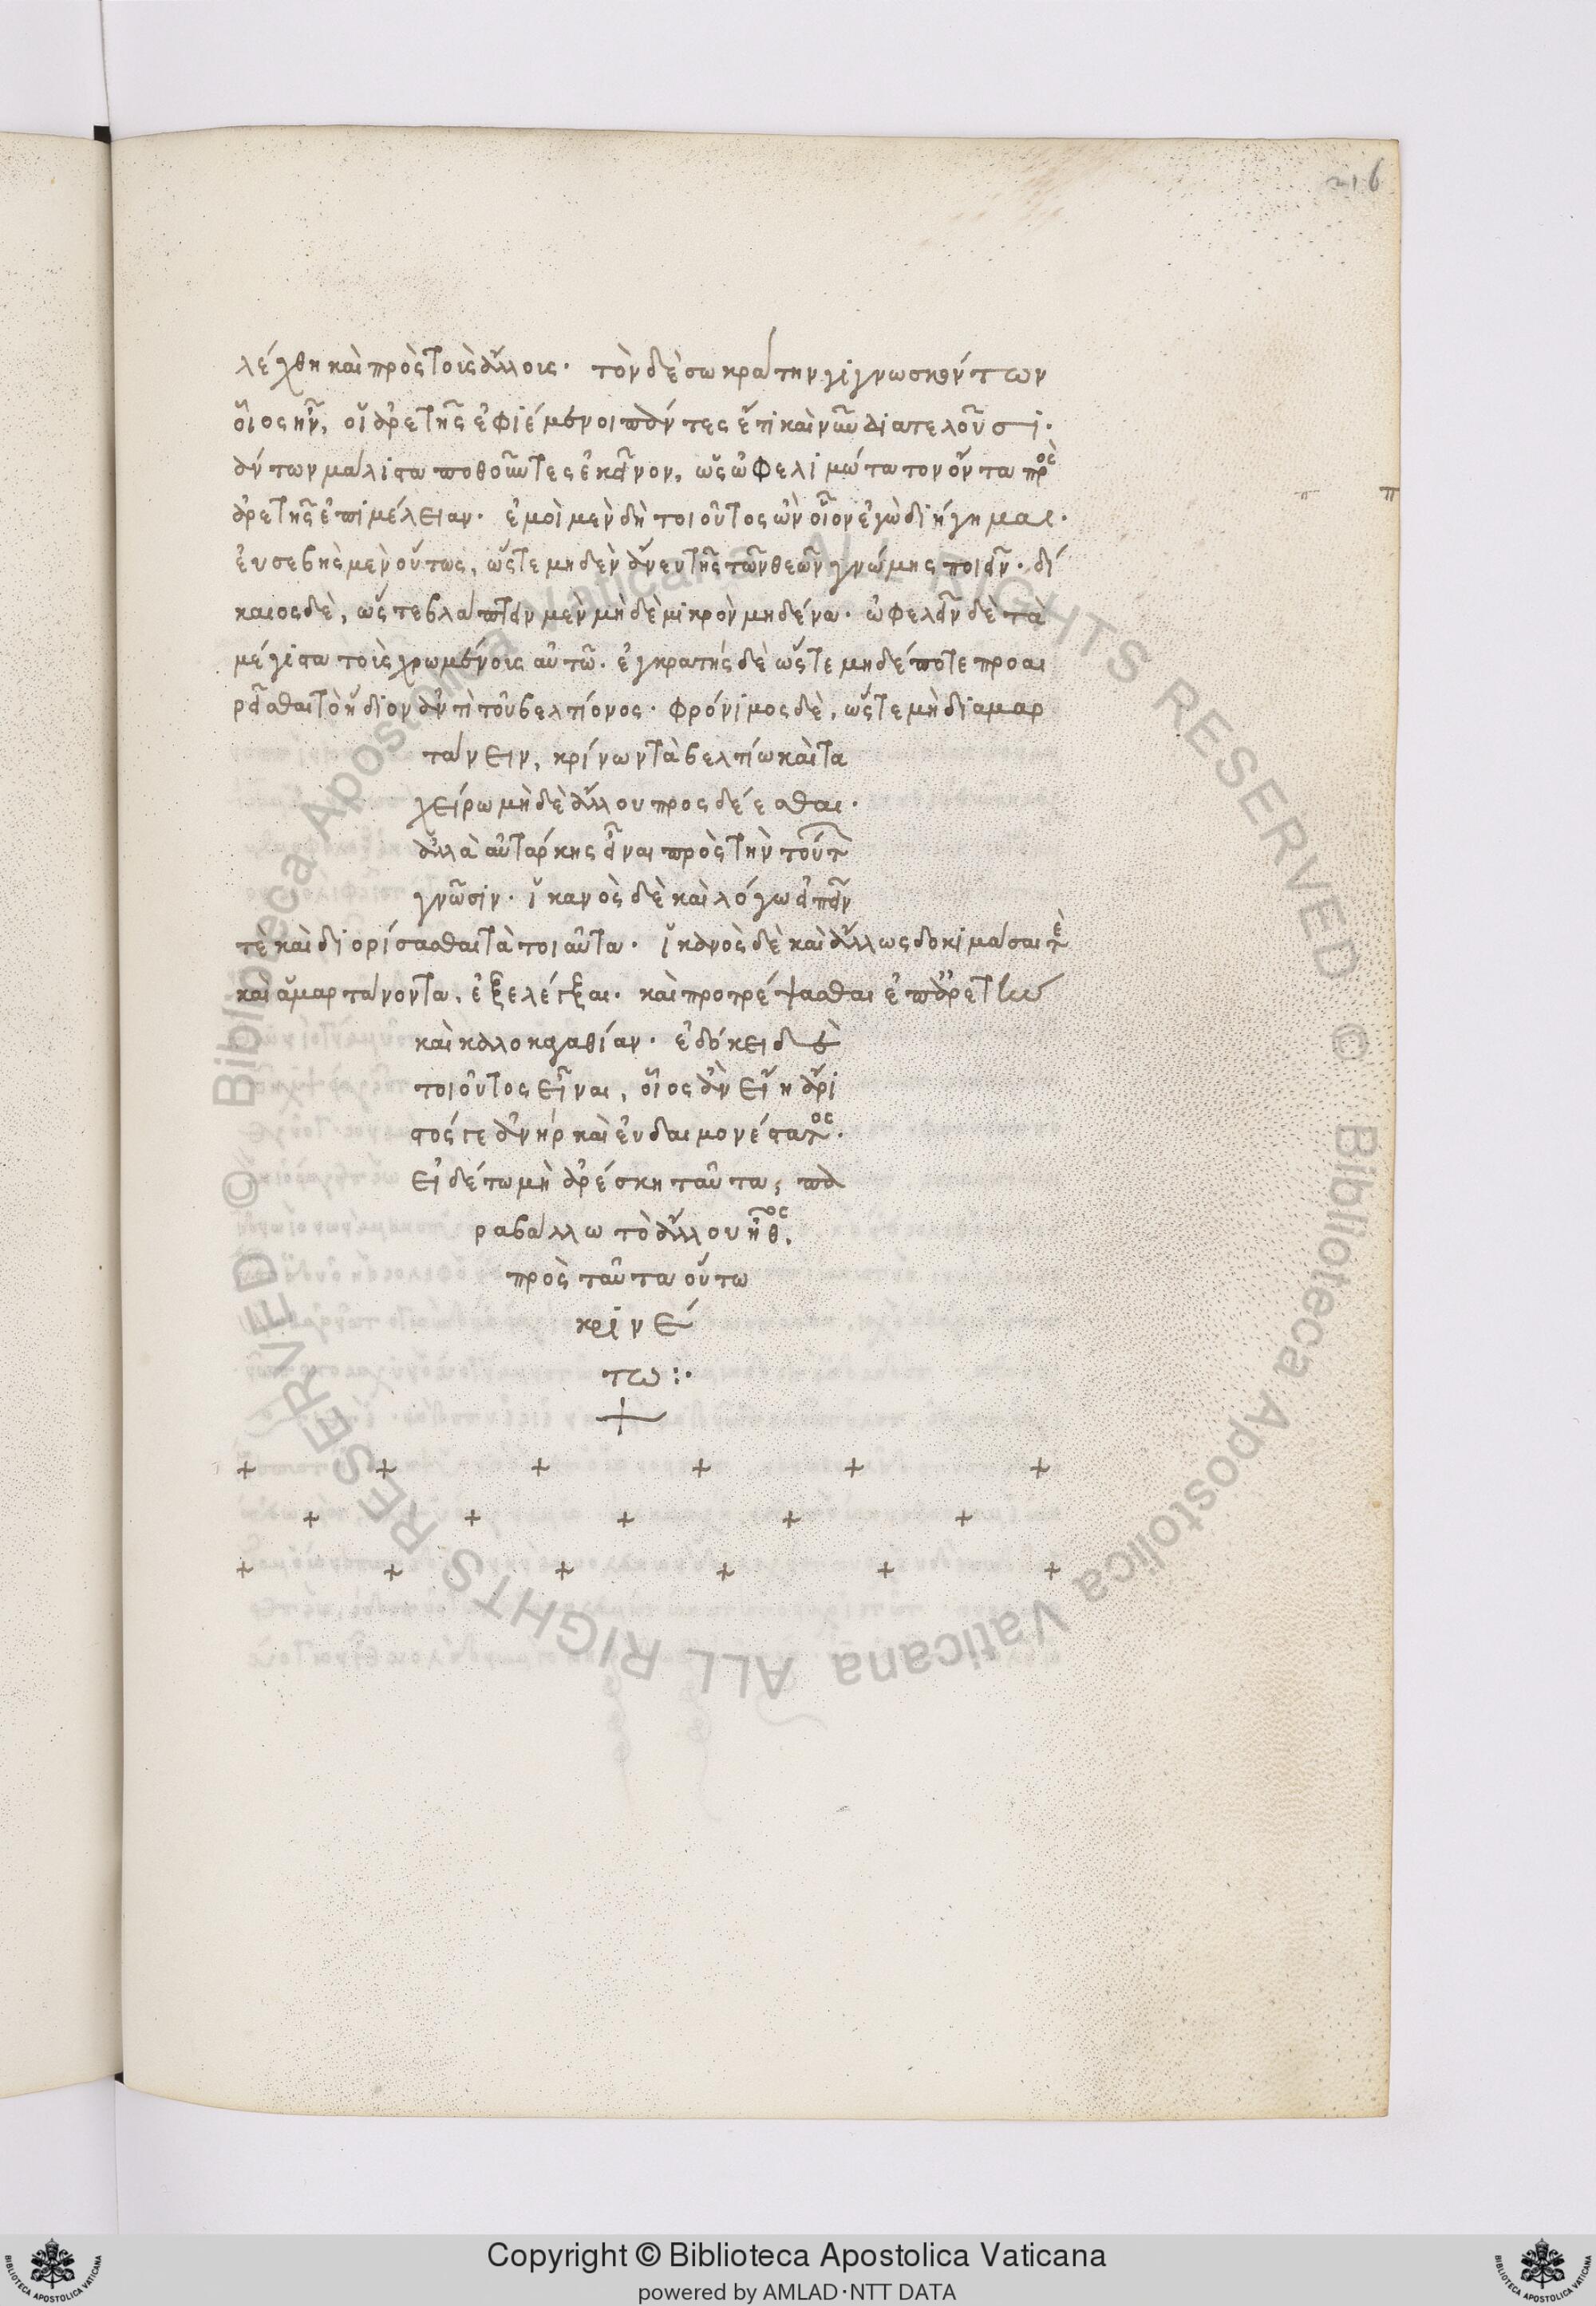 216
λέχθη καὶ πρὸς τοῖς ἄλλοις· τὸν δὲ σωκράτην γιγνωσκόντων
οἷος ἦν, οἱ ἀρετῆς ἐφιέμενοι πάντες ἔτι καὶ νῦν διατελοῦσι·
άντων μάλιστα ποθοῦντες ἐκεῖνον, ὡς ὠφελιμώτατον ὄντα πρὸς
ἀρετῆς ἐπιμέλειαν· ἐμοὶ μὲν δὴ τοιοῦτος ὢν οἷον ἐγὼ διήγημαι·
π π
ἐυσεβὴς μὲν οὕτως, ὥστε μηδὲν ἄνευ τῆς τῶν θεῶν γνώμης ποιεῖν· δί
καιος δὲ, ὥστε βλάπτειν μὲν μὴδὲ μικρὸν μηδένα· ὠφελεῖν δὲ τὰ
μέγιστα τοῖς χρωμένοις αὐτῶ· ἐγκρατής δὲ ὥστε μηδέποτε προαι
ρεῖσθαι τὸ ἥδιον ἀντὶ τοῦ βελτίονος· φρόνιμος δὲ, ὥστε μὴ διαμαρ
τάνειν, κρίνων τὰ βελτίω καὶ τὰ
χείρω μὴδὲ ἄλλου προςδέεσθαι·
ἀλλὰ αὐτάρκης εἶναι πρὸς τὴν τούτων
γνῶσιν· ἱκανὸς δὲ καὶ λόγω εἰπεῖν
τὲ καὶ διορίσασθαι τὰ τοιαῦτα· ἱκανὸς δὲ καὶ ἄλλως δοκιμάσαι τὲ
καὶ ἁμαρτάνοντα, ἐξελέγξαι· καὶ προτρέψασθαι ἐπ' ἀρετὴν
καὶ καλοκαγαθίαν· ἐδόκει δὲ
τοιοῦτος εἶναι, οἷος ἂν εἴη ἄρι
στός γε ἀνὴρ καὶ ἐυδαιμονέστατος·
εἰ δέ τω μὴ ἀρέσκη ταῦτα, πα
ραβάλλω τὸ ἄλλου ἦθος,
πρὸς ταῦτα οὕτω
κρινέ
τω:·
+
+ + + + + +
+ + + + +
+ + + + + +
© Biblioteca Apostolica Vaticana ALL RIGHTS RESERVED © Biblioteca Apostolica Vaticana ALL RIGHTS RESERVED
Copyright © Biblioteca Apostolica Vaticana
powered by AMLAD·NTT DATA
BIBLIOTECA APOSTOLICA VATICANA
BIBLIOTECA APOSTOLICA VATICANA